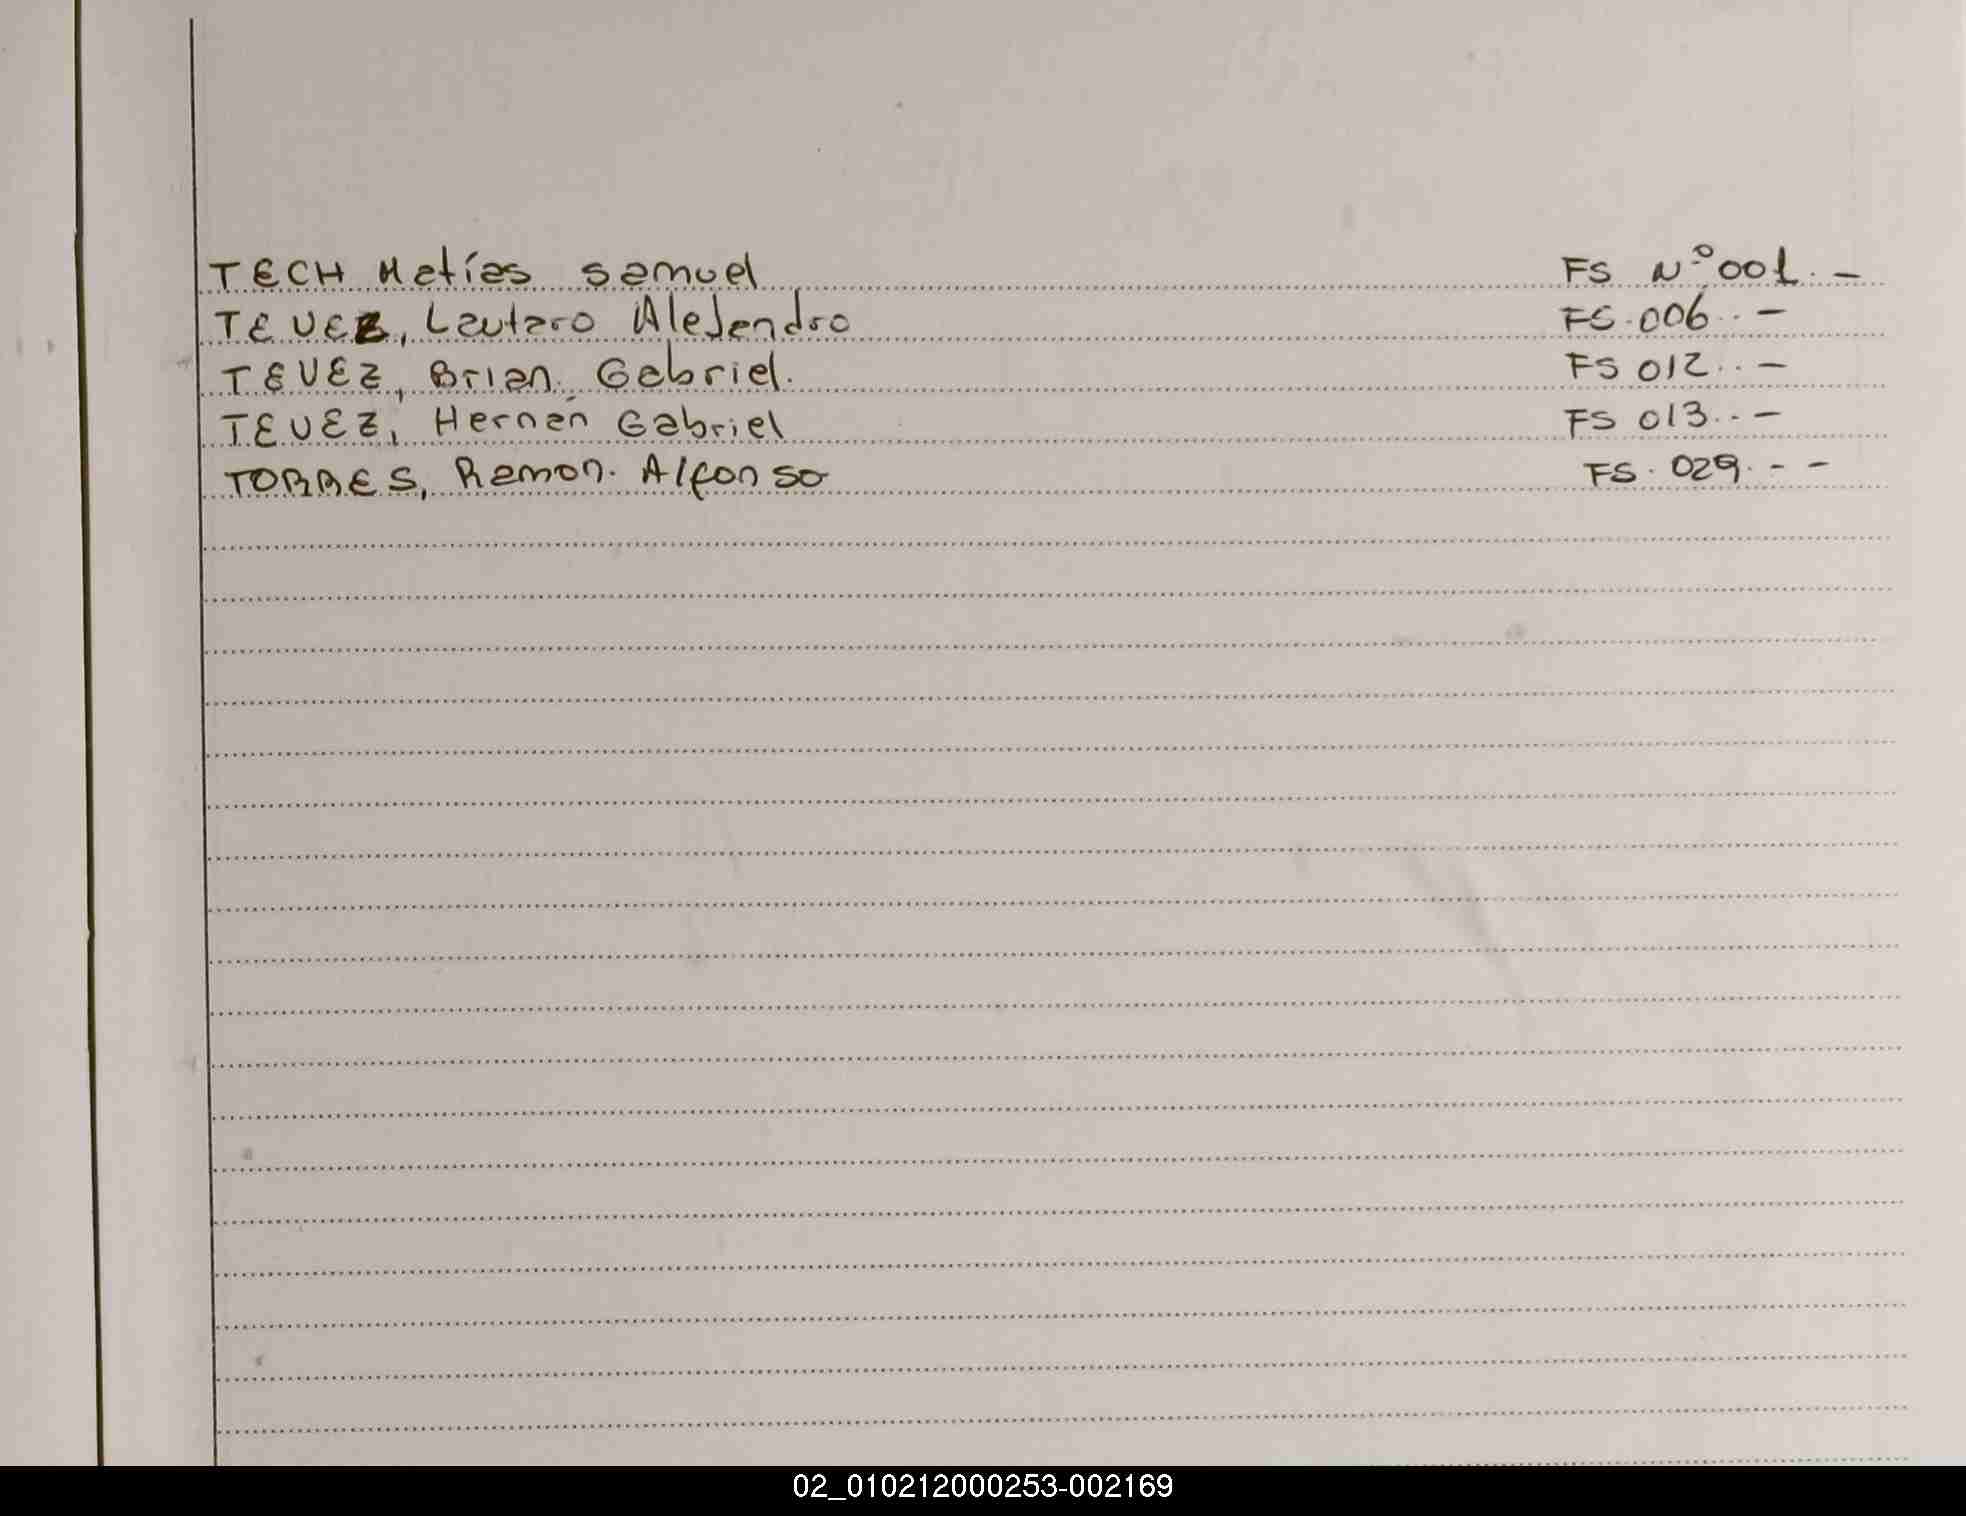 TECH Matías Samuel FS Nº 001. -
TEVEZ, Lautaro Alejandro FS. 006.. -
TEVEZ, Brian. Gabriel. FS 012.. -
TEVEZ, Hernán Gabriel FS 013.. -
TORRES, Ramon. Alfonso FS. 029. - -
02_010212000253-002169